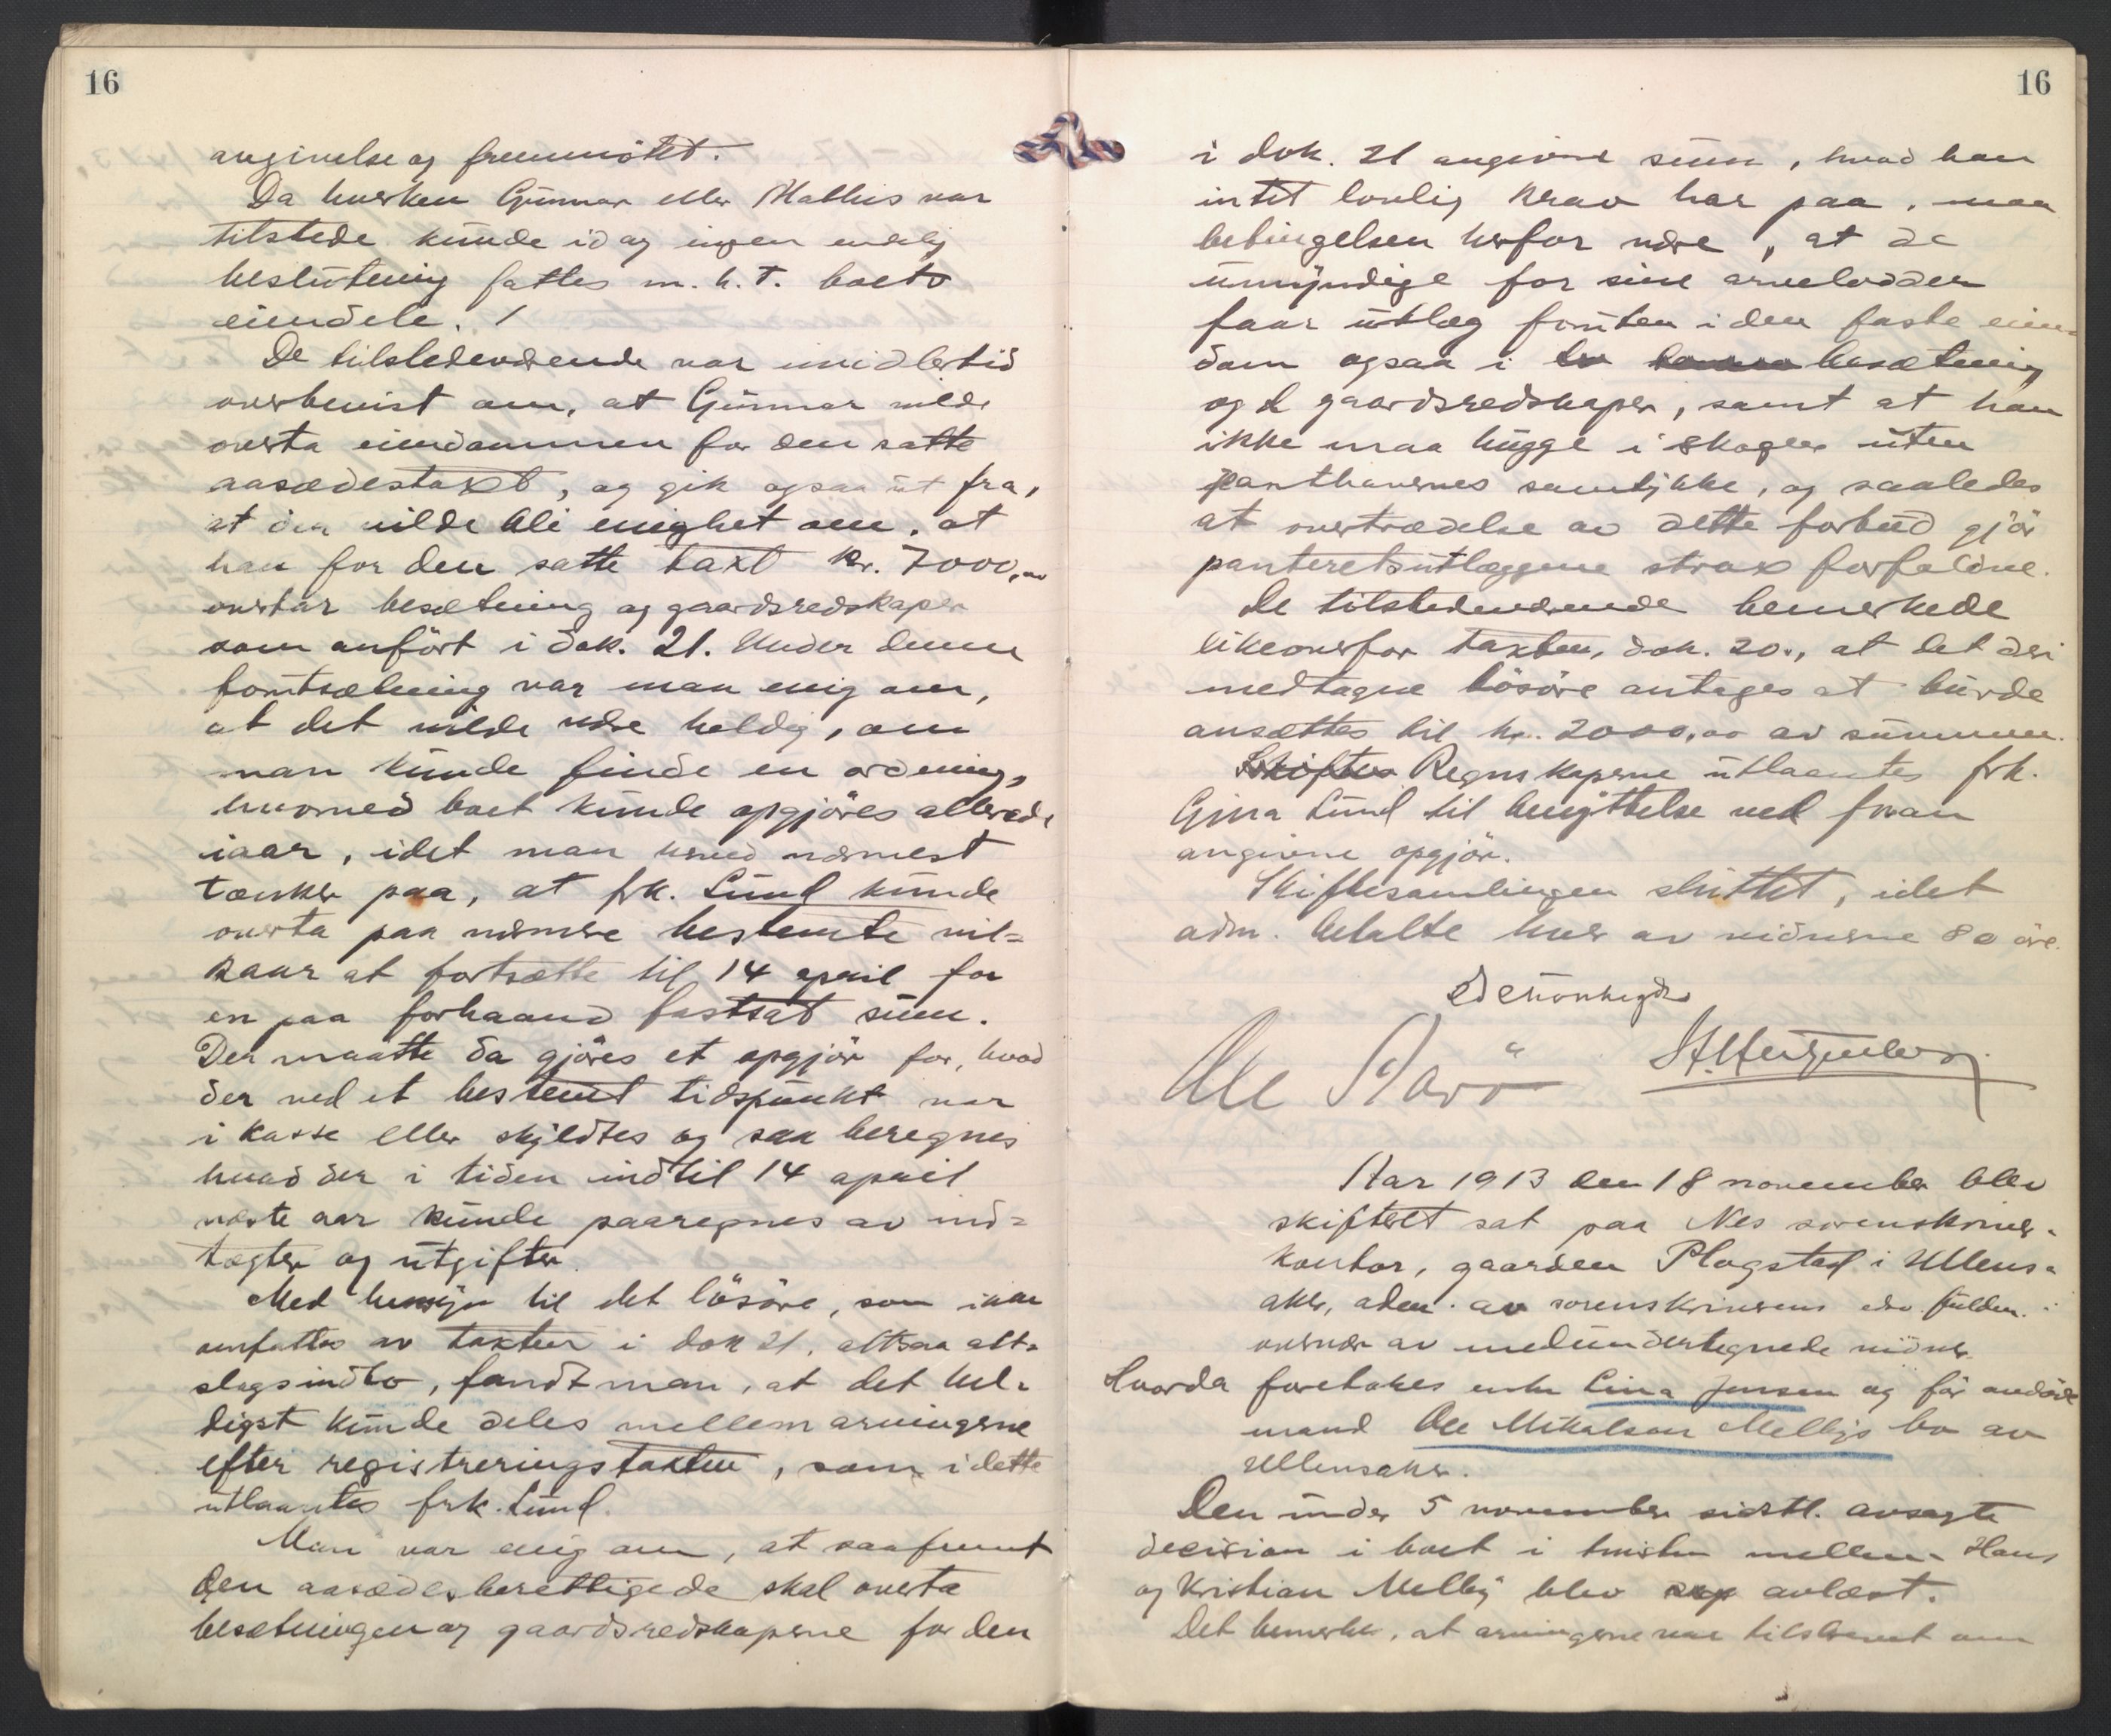 16
angivelse og fremmötet.
Da hverken Gunnar eller Mathis var
tilstede kunde idag ingen endelig
beslutning fattes m. h. t. boets
eiendele. /
De tilstedeværende var imidlertid
overbevist om, at Gunnar vilde
overta eiendommen for den satte
aasædestaxt, og gik ogsaa ut fra,
at der vilde bli enighet om, at
han for den satte taxt kr. 7000,00
overtar besætning og gaardsredskaper
som anfört i dok. 21. Under denne
forutsætning var man enig om,
at det vilde være heldig, om
man kunde finde en ordning,
hvorved boet kunde opgjöres allerede
iaar, idet man herved nærmest
tænker paa, at frk. Lund kunde
overta paa nærmere bestemte vil=
kaar at fortsætte til 14 april for
en paa forhaand fastsat sum.
Der maatte da gjöres et opgjör for, hvad
der ved et bestemt tidspunkt var
i kasse eller skyldtes og saa beregnes
hvad der i tiden indtil 14 april
næste aar kunde paaregnes av ind=
tægter og utgifter.
Med hensyn til det lösöre, som ikke
omfattes av taxten i dok 21, altsaa alt=
slags indbo, fandt man, at det hel=
digst kunde deles mellem arvingerne
efter registreringstaxten, som i dette
utlaantes frk. Lund.
Man var enig om, at saafremt
den aasædesberettigede skal overta
besætningen og gaardsredskaperne for den
16
i dok. 21 angivne sum, hvad han
intet lovlig krav har paa, maa
betingelsen herfor være, at de
umyndige for sine arvelodder
faar utlæg foruten i den faste eien=
dom ogsaa i besætning
og gaardsredskaper, samt at han
ikke maa hugge i skogen uten
panthavernes samtykke, og saaledes
at overtrædelse av dette forbud gjör
panteretsutlæggene strax forfaldne.
De tilstedeværende bemerkede
likeoverfor taxten, dok. 20, at det deri
medtagne lösöre antages at burde
ansættes til kr. 2000,00 av summen.
Skiftes Regnskaperne utlaantes frk.
Gina Lund til benyttelse ved foran
angivne opgjör.
Skiftesamlingen sluttet, idet
adm. betalte hver av vidnerne 80 öre.
Ole
Aar 1913 den 18 november blev
skifteret sat paa Nes sorenskriver=
kontor, gaarden Plogstad i Ullens=
aker, adm. av sorenskriverens edsv. fuldm. i
overvær av medundertegnede vidner.
Hvorda foretakes enke Lina Jensen og för avdöde
mand Ole Mikalsen Mellys bo av
Ullensaker.
Den under 5 november sidstl. avsagte
decision i boet i tvisten mellem Hans
og Kristian Melby blev avlæst.
Det bemerkes, at arvingerne var tilskrevet om